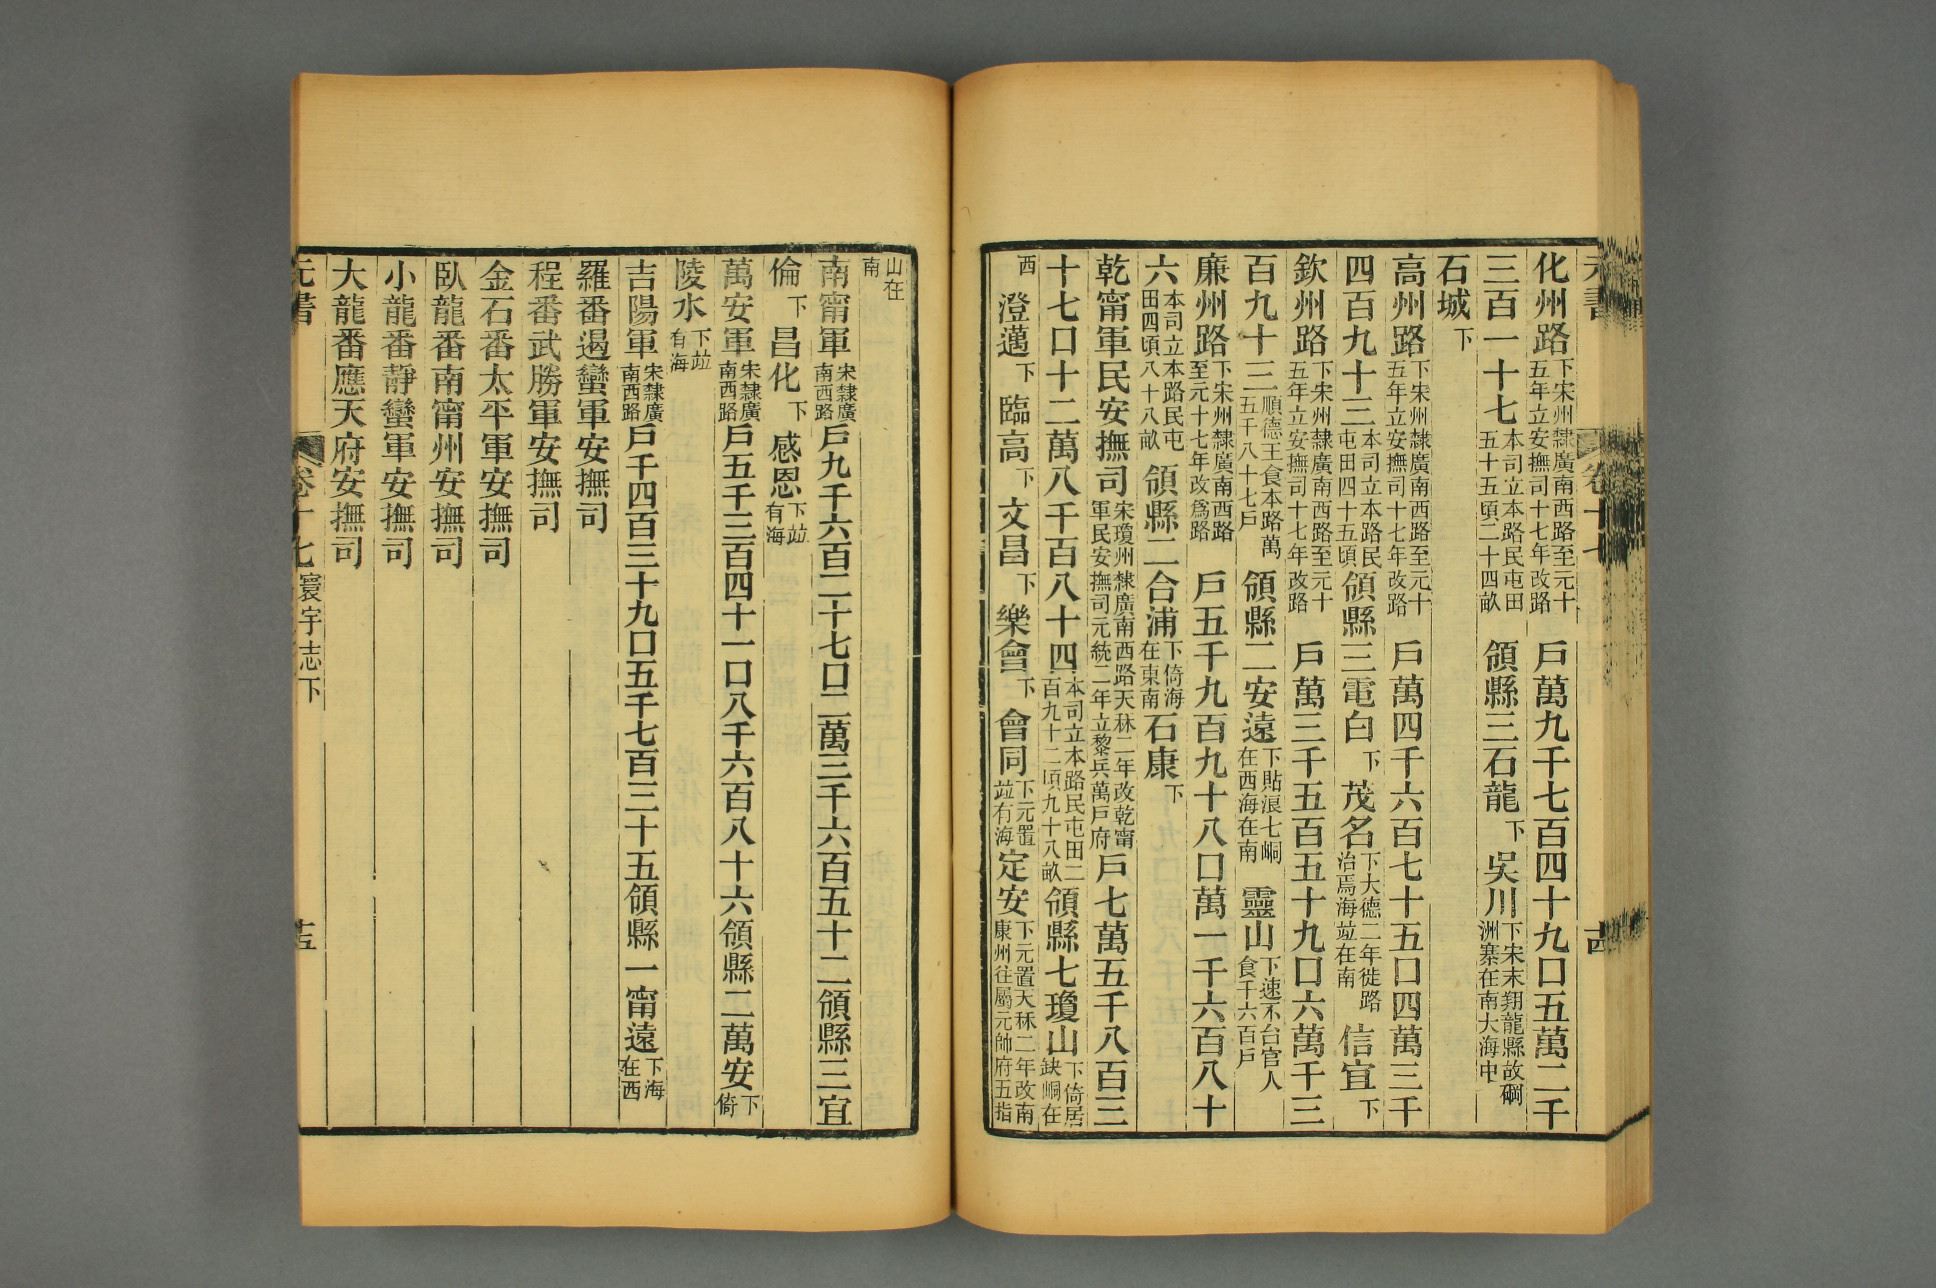 化州路下宋州隸廣南西路至元十五年立安撫司十七年改路戶萬九千七百四十九口五萬二千
三百一十七本司立本路民屯田五十五頃二十四畝領縣三石龍下吳川下宋末翔龍縣故碙洲寨在南大海中
石城下
高州路下宋州隸廣南西路至元十五年立安撫司十七年改路戶萬四千六百七十五口四萬三千
四百九十三本司立本路民屯田四十五頃領縣三電白下茂名下大德二年徙路治焉海竝在南信宜下
欽州路下宋州隸廣南西路至元十五年立安撫司十七年改路戶萬三千五百五十九口六萬千三
百九十三順德王食本路萬五千八十七戶領縣二安遠下貼浪七峒在西海在南靈山下速不台官人食千六百戶
廉州路下宋州隸廣南西路至元十七年改爲路戶五千九百九十八口萬一千六百八十
六本司立本路民屯田四頃八十八畝領縣二合浦下倚海在東南石康下
乾甯軍民安撫司宋瓊州隸廣南西路天秝二年改乾甯軍民安撫司元統二年立黎兵萬戶府戶七萬五千八百三
十七口十二萬八千百八十四本司立本路民屯田二百九十二頃九十八畝領縣七瓊山下倚居缺峒在
西澄邁下臨高下文昌下樂會下會同下元置竝有海定安下元置天秝二年改南康州往屬元帥府五指
元書
卷十七
十四
山在南
南甯軍宋隸廣南西路戶九千六百二十七口二萬三千六百五十二領縣三宜
倫下昌化下感恩下竝有海
萬安軍宋隸廣南西路戶五千三百四十一口八千六百八十六領縣二萬安下倚
陵水下竝有海
吉陽軍宋隸廣南西路戶千四百三十九口五千七百三十五領縣一甯遠下海在西
羅番遏蠻軍安撫司
程番武勝軍安撫司
金石番太平軍安撫司
臥龍番南甯州安撫司
小龍番靜蠻軍安撫司
大龍番應天府安撫司
元書
卷十七寰宇志下
十五